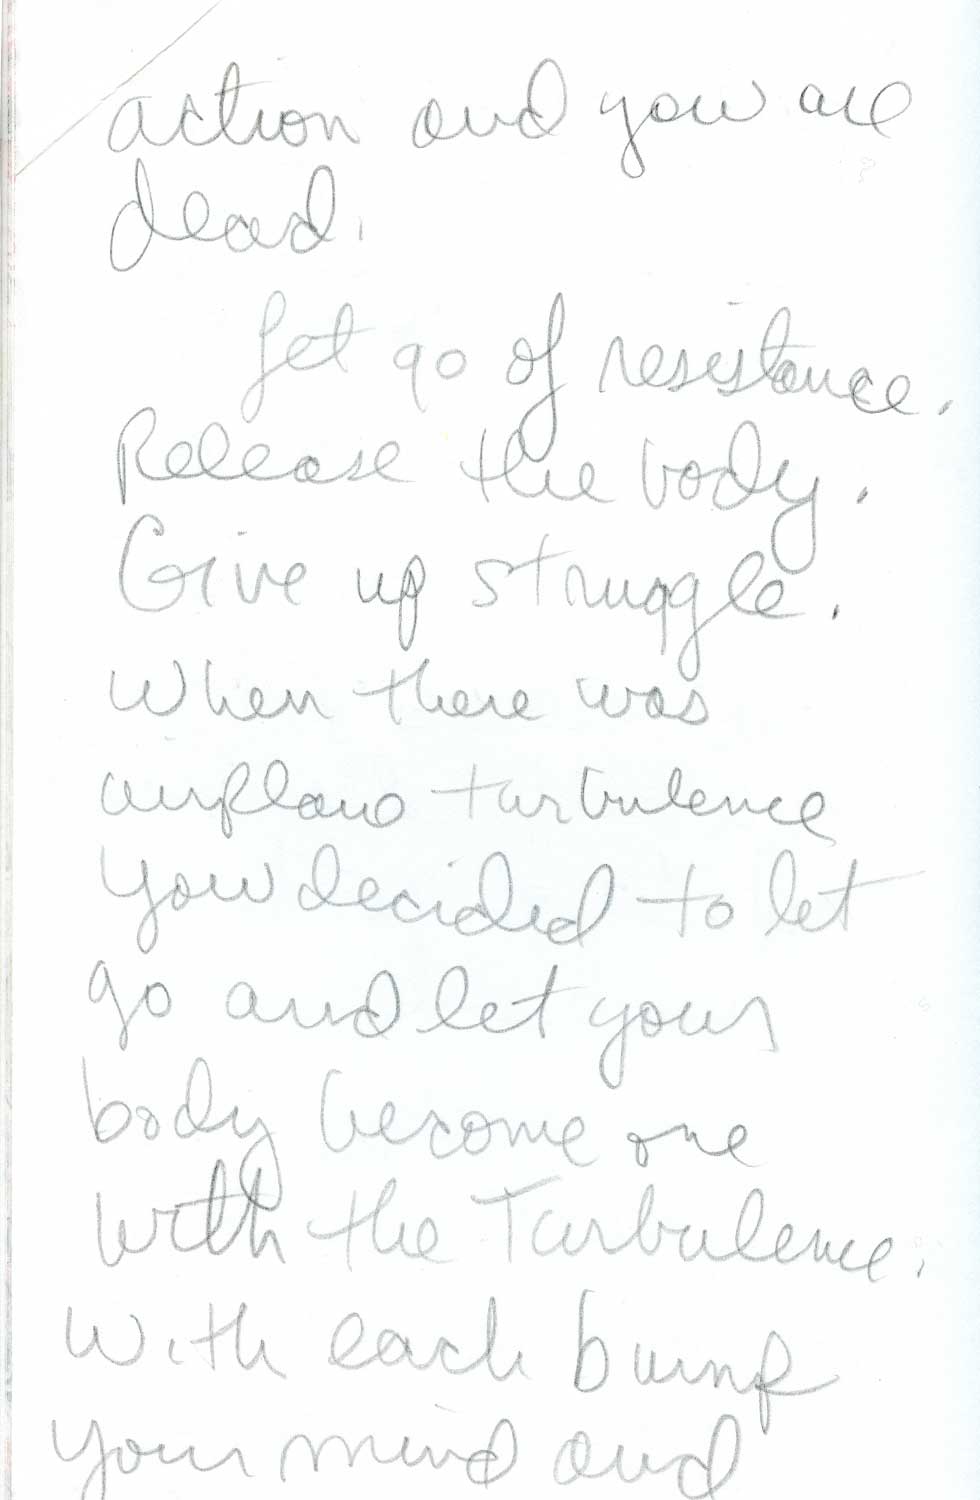 action and you are
dead.
Let go of resistance.
Release the body.
Give up struggle.
When there was
airplane turbulence
you decided to let
go and let your
body become one
with the Turbulence.
With each bump
your mind and